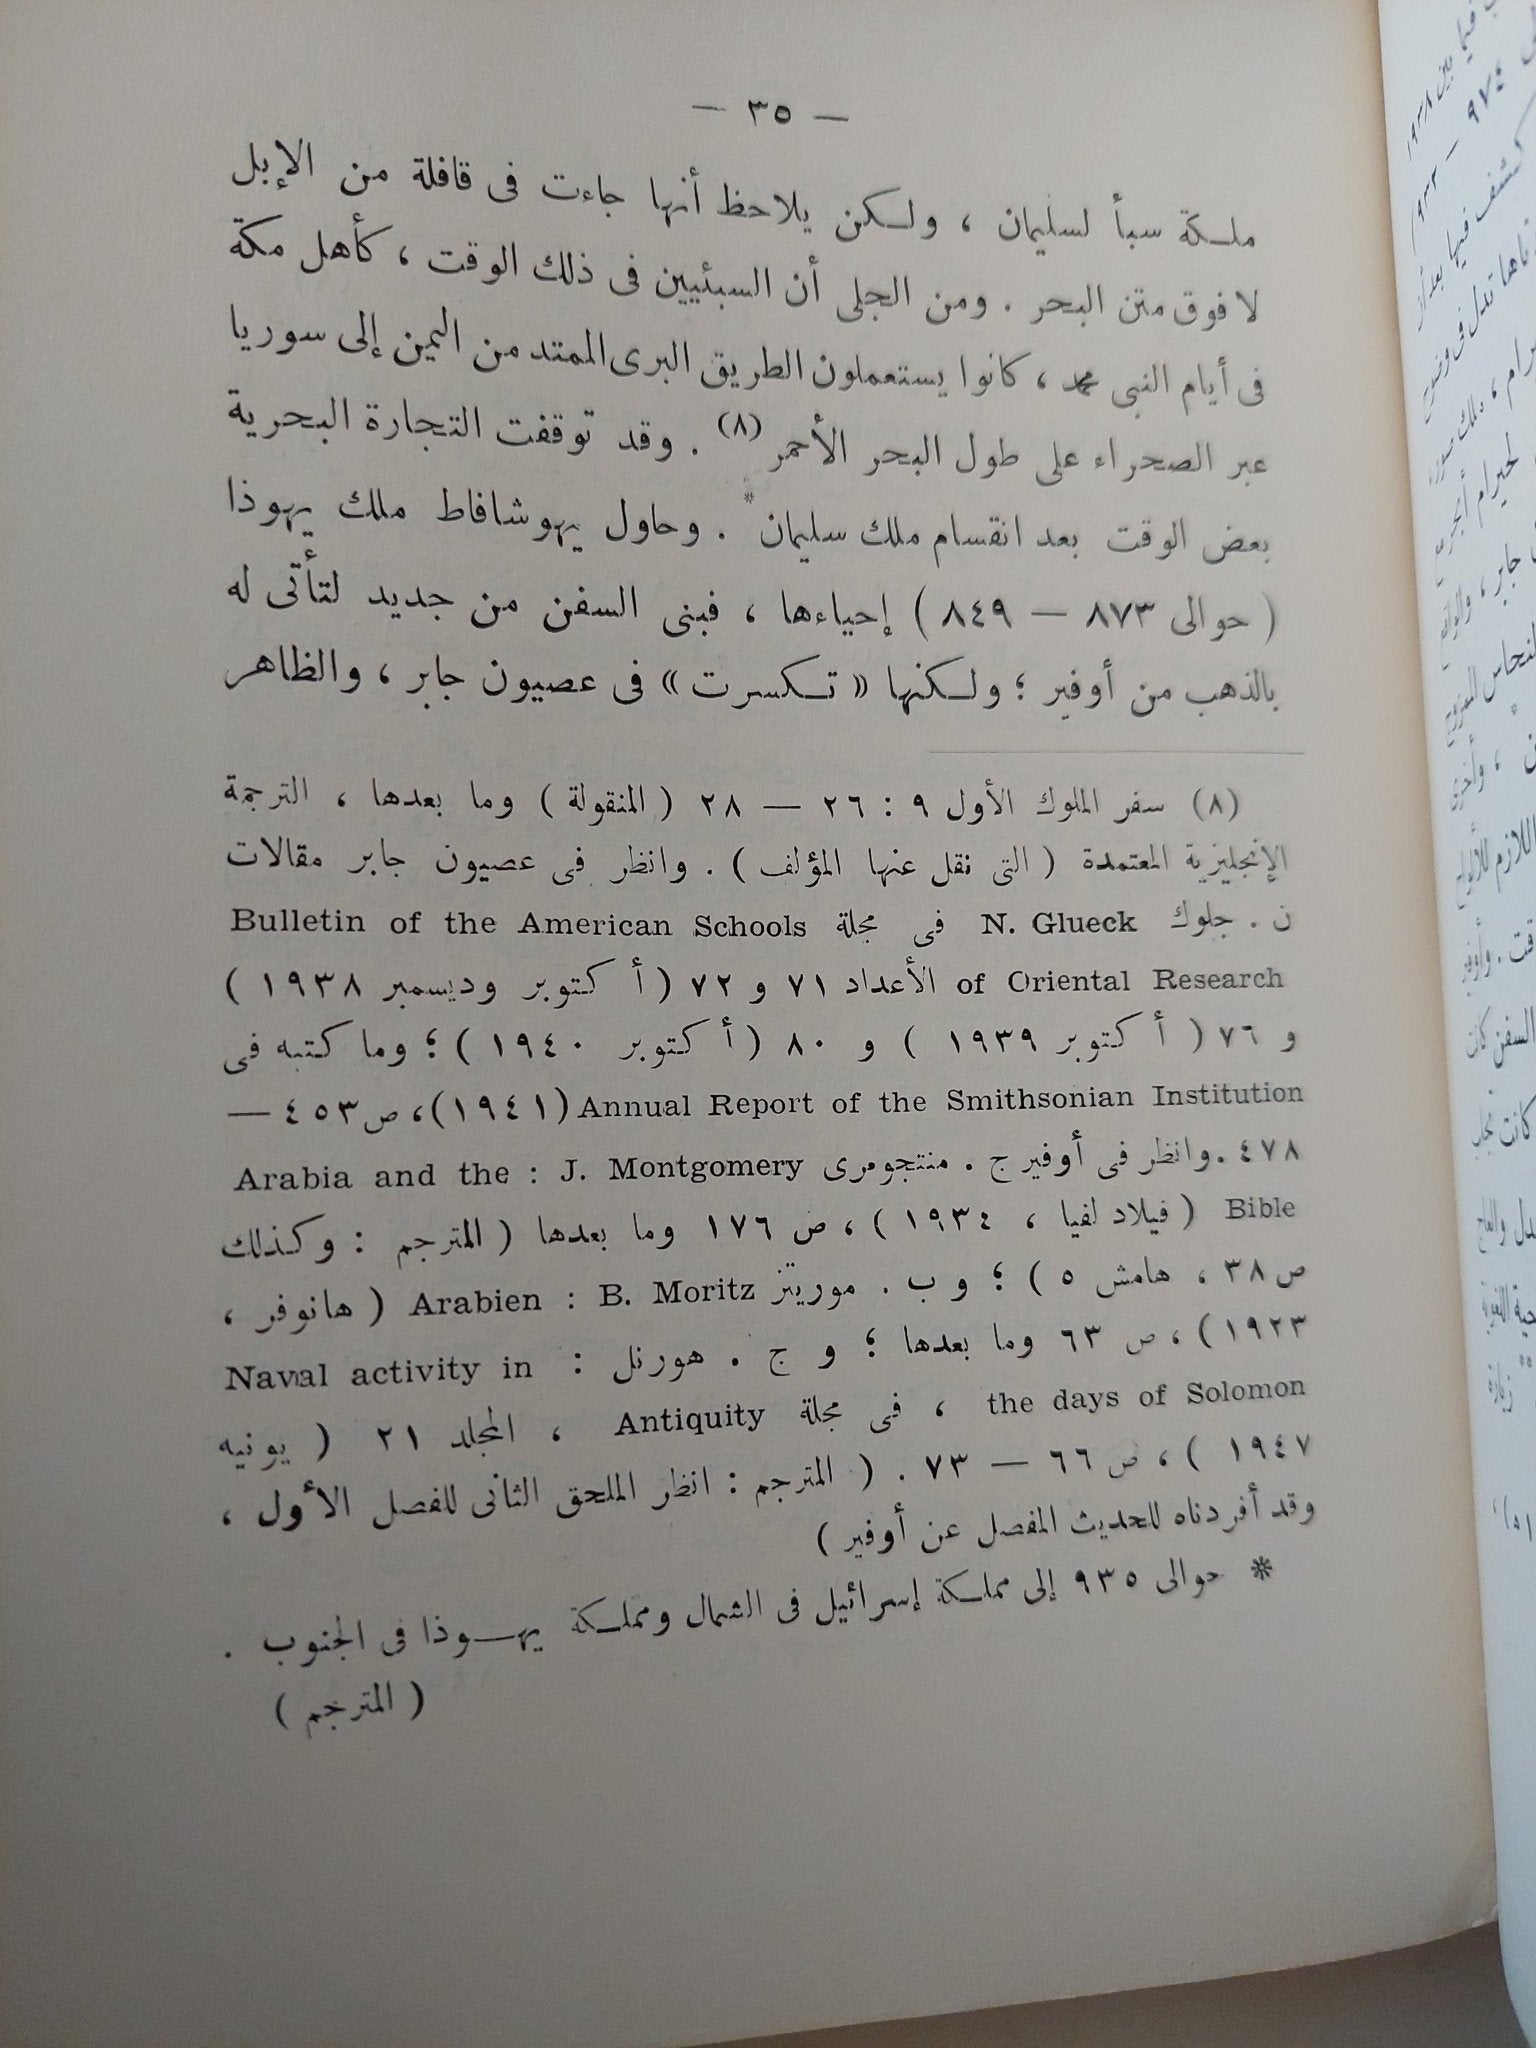 — ٣٥ —
ملكة سبأ لسليمان ، ولكن يلاحظ أنها جاءت فى قافلة من الإبل
لا فوق متن البحر . ومن الجلى أن السبئيين فى ذلك الوقت ، كأهل مكة
فى أيام النبى محمد ، كانوا يستعملون الطريق البرى الممتد من اليمن إلى سوريا
عبر الصحراء على طول البحر الأحمر (٨) . وقد توقفت التجارة البحرية
بعض الوقت بعد انقسام ملك سليمان * . وحاول يهوشافاط ملك يهوذا
( حوالى ٨٧٣ — ٨٤٩ ) إحياءها ، فبنى السفن من جديد لتأتى له
بالذهب من أوفير ؛ ولكنها « تكسرت » فى عصيون جابر ، والظاهر
(٨) سفر الملوك الأول ٩ : ٢٦ — ٢٨ ( المنقولة ) وما بعدها ، الترجمة
الإنجليزية المعتمدة ( التى نقل عنها المؤلف ) . وانظر فى عصيون جابر مقالات
ن . جلوك N. Glueck فى مجلة Bulletin of the American Schools
of Oriental Research الأعداد ٧١ و ٧٢ ( أكتوبر وديسمبر ١٩٣٨ )
و ٧٦ ( أكتوبر ١٩٣٩ ) و ٨٠ ( أكتوبر ١٩٤٠ ) ؛ وما كتبه فى
Annual Report of the Smithsonian Institution (١٩٤١) ، ص ٤٥٣ —
٤٧٨ . وانظر فى أوفير ج . منتجومرى J. Montgomery : Arabia and the
Bible ( فيلادلفيا ، ١٩٣٤ ) ، ص ١٧٦ وما بعدها ( المترجم : وكذلك
ص ٣٨ ، هامش ٥ ) ؛ و ب . موريتز B. Moritz : Arabien ( هانوفر ،
١٩٢٣ ) ، ص ٦٣ وما بعدها ؛ و ج . هورنل : Naval activity in
the days of Solomon ، فى مجلة Antiquity ، المجلد ٢١ ( يونيه
١٩٤٧ ) ، ص ٦٦ — ٧٣ . ( المترجم : انظر الملحق الثانى للفصل الأول ،
وقد أفردناه للحديث المفصل عن أوفير )
* حوالى ٩٣٥ إلى مملكة إسرائيل فى الشمال ومملكة يهوذا فى الجنوب .
( المترجم )